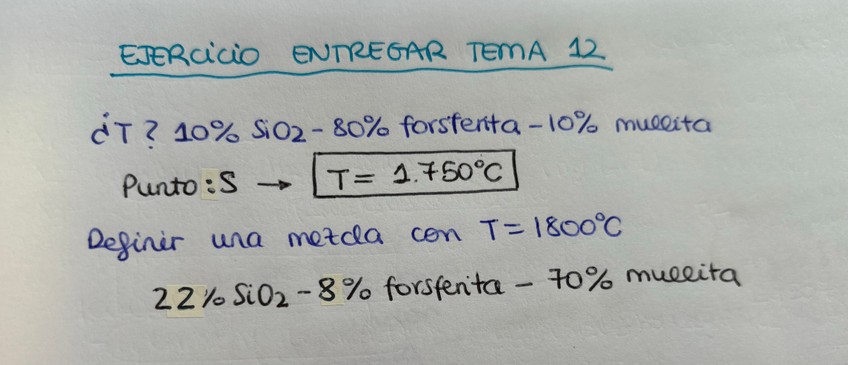 EJERCICIO ENTREGAR TEMA 12
¿T? 10% SiO2 - 80% forsterita - 10% mullita
Punto: S → T = 1.750°C
Definir una mezcla con T = 1800°C
22% SiO2 - 8% forsterita - 70% mullita